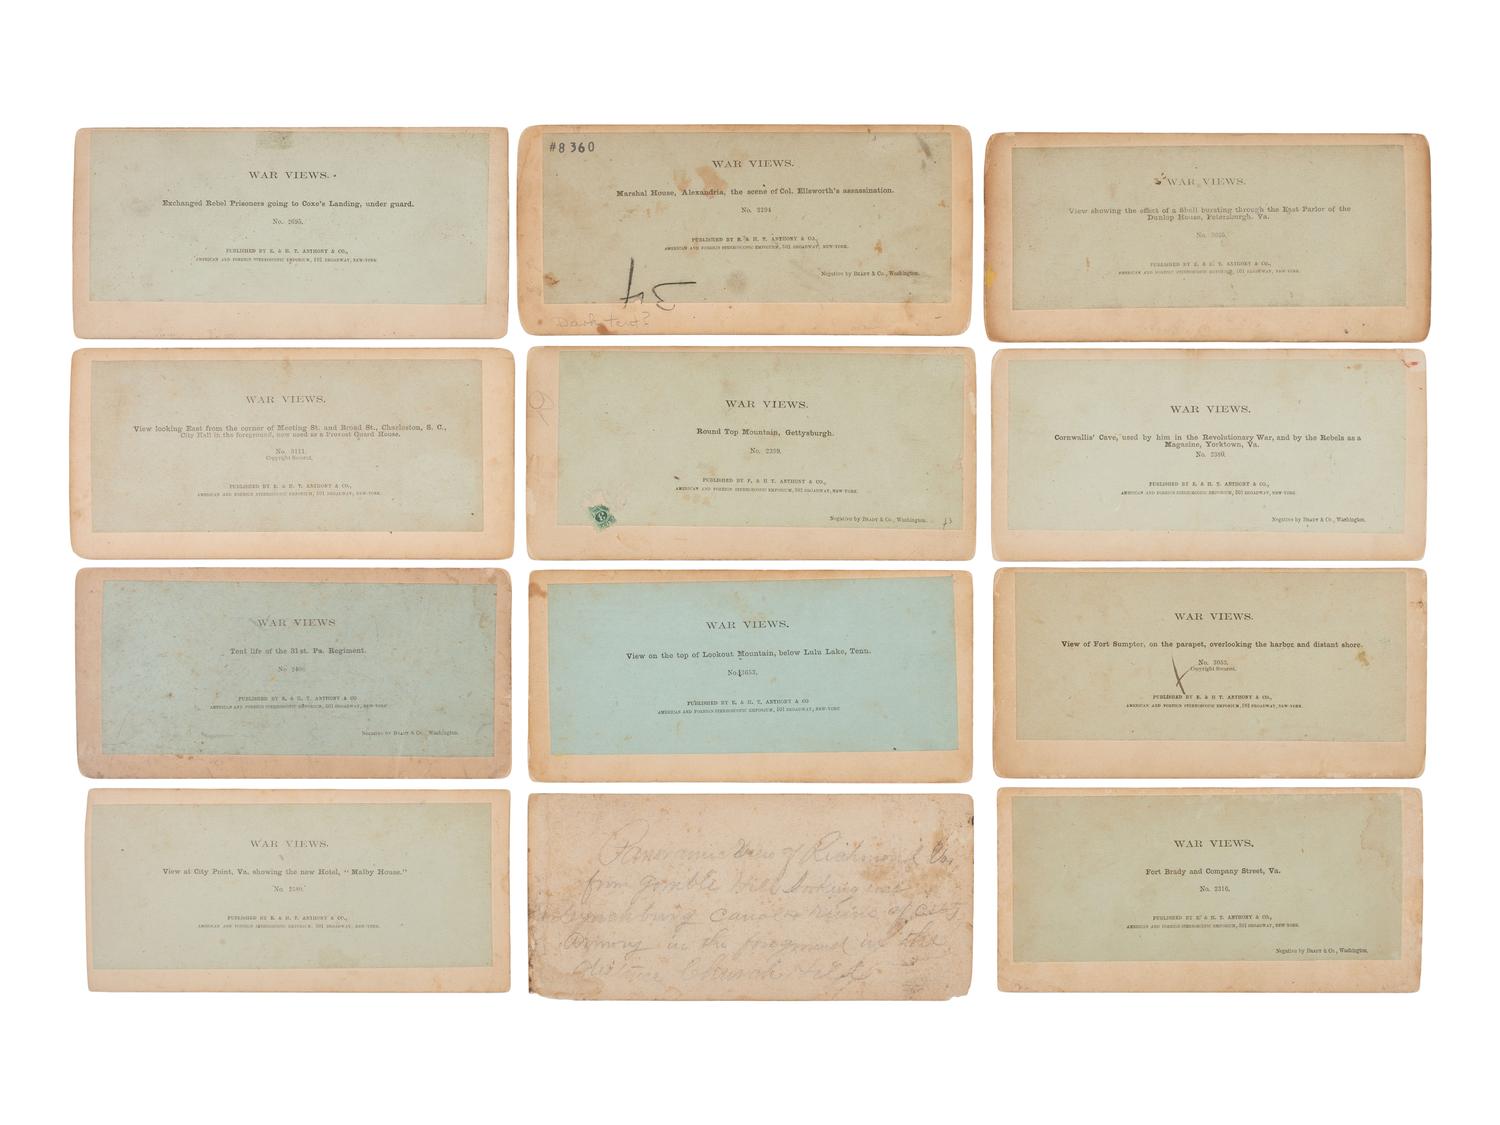 WAR VIEWS.
Exchanged Rebel Prisoners going to Coxe's Landing, under guard.
No. 2695.
PUBLISHED BY E. & H. T. ANTHONY & CO.,
AMERICAN AND FOREIGN STEREOSCOPIC EMPORIUM, 501 BROADWAY, NEW-YORK
#8360
WAR VIEWS.
Marshal House, Alexandria, the scene of Col. Ellsworth's assassination.
No. 2294
PUBLISHED BY E. & H. T. ANTHONY & CO.,
AMERICAN AND FOREIGN STEREOSCOPIC EMPORIUM, 501 BROADWAY, NEW-YORK.
Negative by BRADY & Co., Washington.
Dark tent?
WAR VIEWS.
View showing the effect of a Shell bursting through the East Parlor of the
Dunlop House, Petersburgh, Va.
No.
PUBLISHED BY E. & H. T. ANTHONY & CO.,
AMERICAN AND FOREIGN STEREOSCOPIC EMPORIUM, 501 BROADWAY, NEW-YORK.
WAR VIEWS.
View looking East from the corner of Meeting St. and Broad St., Charleston, S. C.,
City Hall in the foreground, now used as a Provost Guard House.
No. 3111.
Copyright Secured.
PUBLISHED BY E. & H. T. ANTHONY & CO.,
AMERICAN AND FOREIGN STEREOSCOPIC EMPORIUM, 501 BROADWAY, NEW-YORK.
WAR VIEWS.
Round Top Mountain, Gettysburgh.
No. 2399.
PUBLISHED BY E. & H. T. ANTHONY & CO.,
AMERICAN AND FOREIGN STEREOSCOPIC EMPORIUM, 501 BROADWAY, NEW-YORK.
Negative by BRADY & Co., Washington.
WAR VIEWS.
Cornwallis' Cave, used by him in the Revolutionary War, and by the Rebels as a
Magazine, Yorktown, Va.
No. 2380.
PUBLISHED BY E. & H. T. ANTHONY & CO.,
AMERICAN AND FOREIGN STEREOSCOPIC EMPORIUM, 501 BROADWAY, NEW-YORK.
Negative by BRADY & Co., Washington.
WAR VIEWS
Tent life of the 31st. Pa. Regiment.
No 2400
PUBLISHED BY E. & H. T. ANTHONY & CO
AMERICAN AND FOREIGN STEREOSCOPIC EMPORIUM, 501 BROADWAY, NEW-YORK
Negative by BRADY & Co., Washington.
WAR VIEWS.
View on the top of Lookout Mountain, below Lulu Lake, Tenn.
No. 3653.
PUBLISHED BY E. & H. T. ANTHONY & CO
AMERICAN AND FOREIGN STEREOSCOPIC EMPORIUM, 501 BROADWAY, NEW-YORK
WAR VIEWS.
View of Fort Sumpter, on the parapet, overlooking the harbor and distant shore.
No. 3053.
Copyright Secured.
PUBLISHED BY E. & H T. ANTHONY & CO.,
AMERICAN AND FOREIGN STEREOSCOPIC EMPORIUM, 501 BROADWAY, NEW-YORK.
WAR VIEWS.
View at City Point, Va. showing the new Hotel, "Malby House."
No 2580.
PUBLISHED BY E. & H. T. ANTHONY & CO.,
AMERICAN AND FOREIGN STEREOSCOPIC EMPORIUM, 501 BROADWAY, NEW-YORK.
Panoramic View of Richmond Va.
from Gamble Hill looking
Lynchburg Canal & ruins of City
Armory in the foreground in the
distance Church Hill
WAR VIEWS.
Fort Brady and Company Street, Va.
No. 2316.
PUBLISHED BY E. & H. T. ANTHONY & CO.,
AMERICAN AND FOREIGN STEREOSCOPIC EMPORIUM, 501 BROADWAY, NEW-YORK.
Negative by BRADY & Co., Washington.